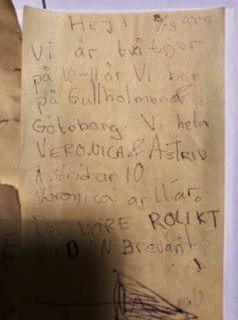 HEJ!
Vi är två tjejer
på 10-11 år Vi bor
på Gullholmen i
Götoborg Vi heter
VERONICA & ASTRID
Astrid är 10
Veronica är 11 år.
DE VORE ROLIKT
MED EN Brevän
!